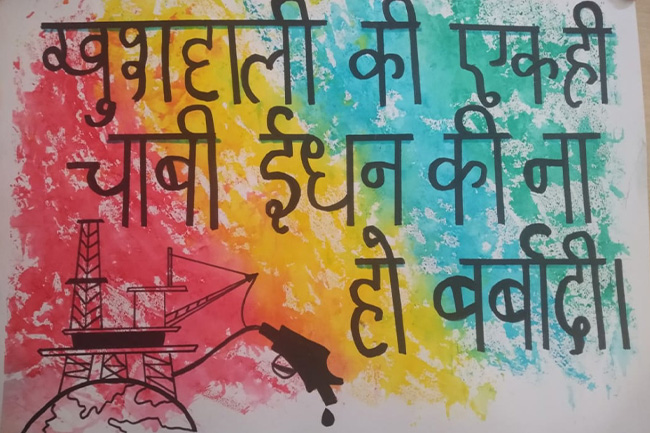 खुशहाली की एकही
चाबी ईधन की ना
हो बर्बादी।